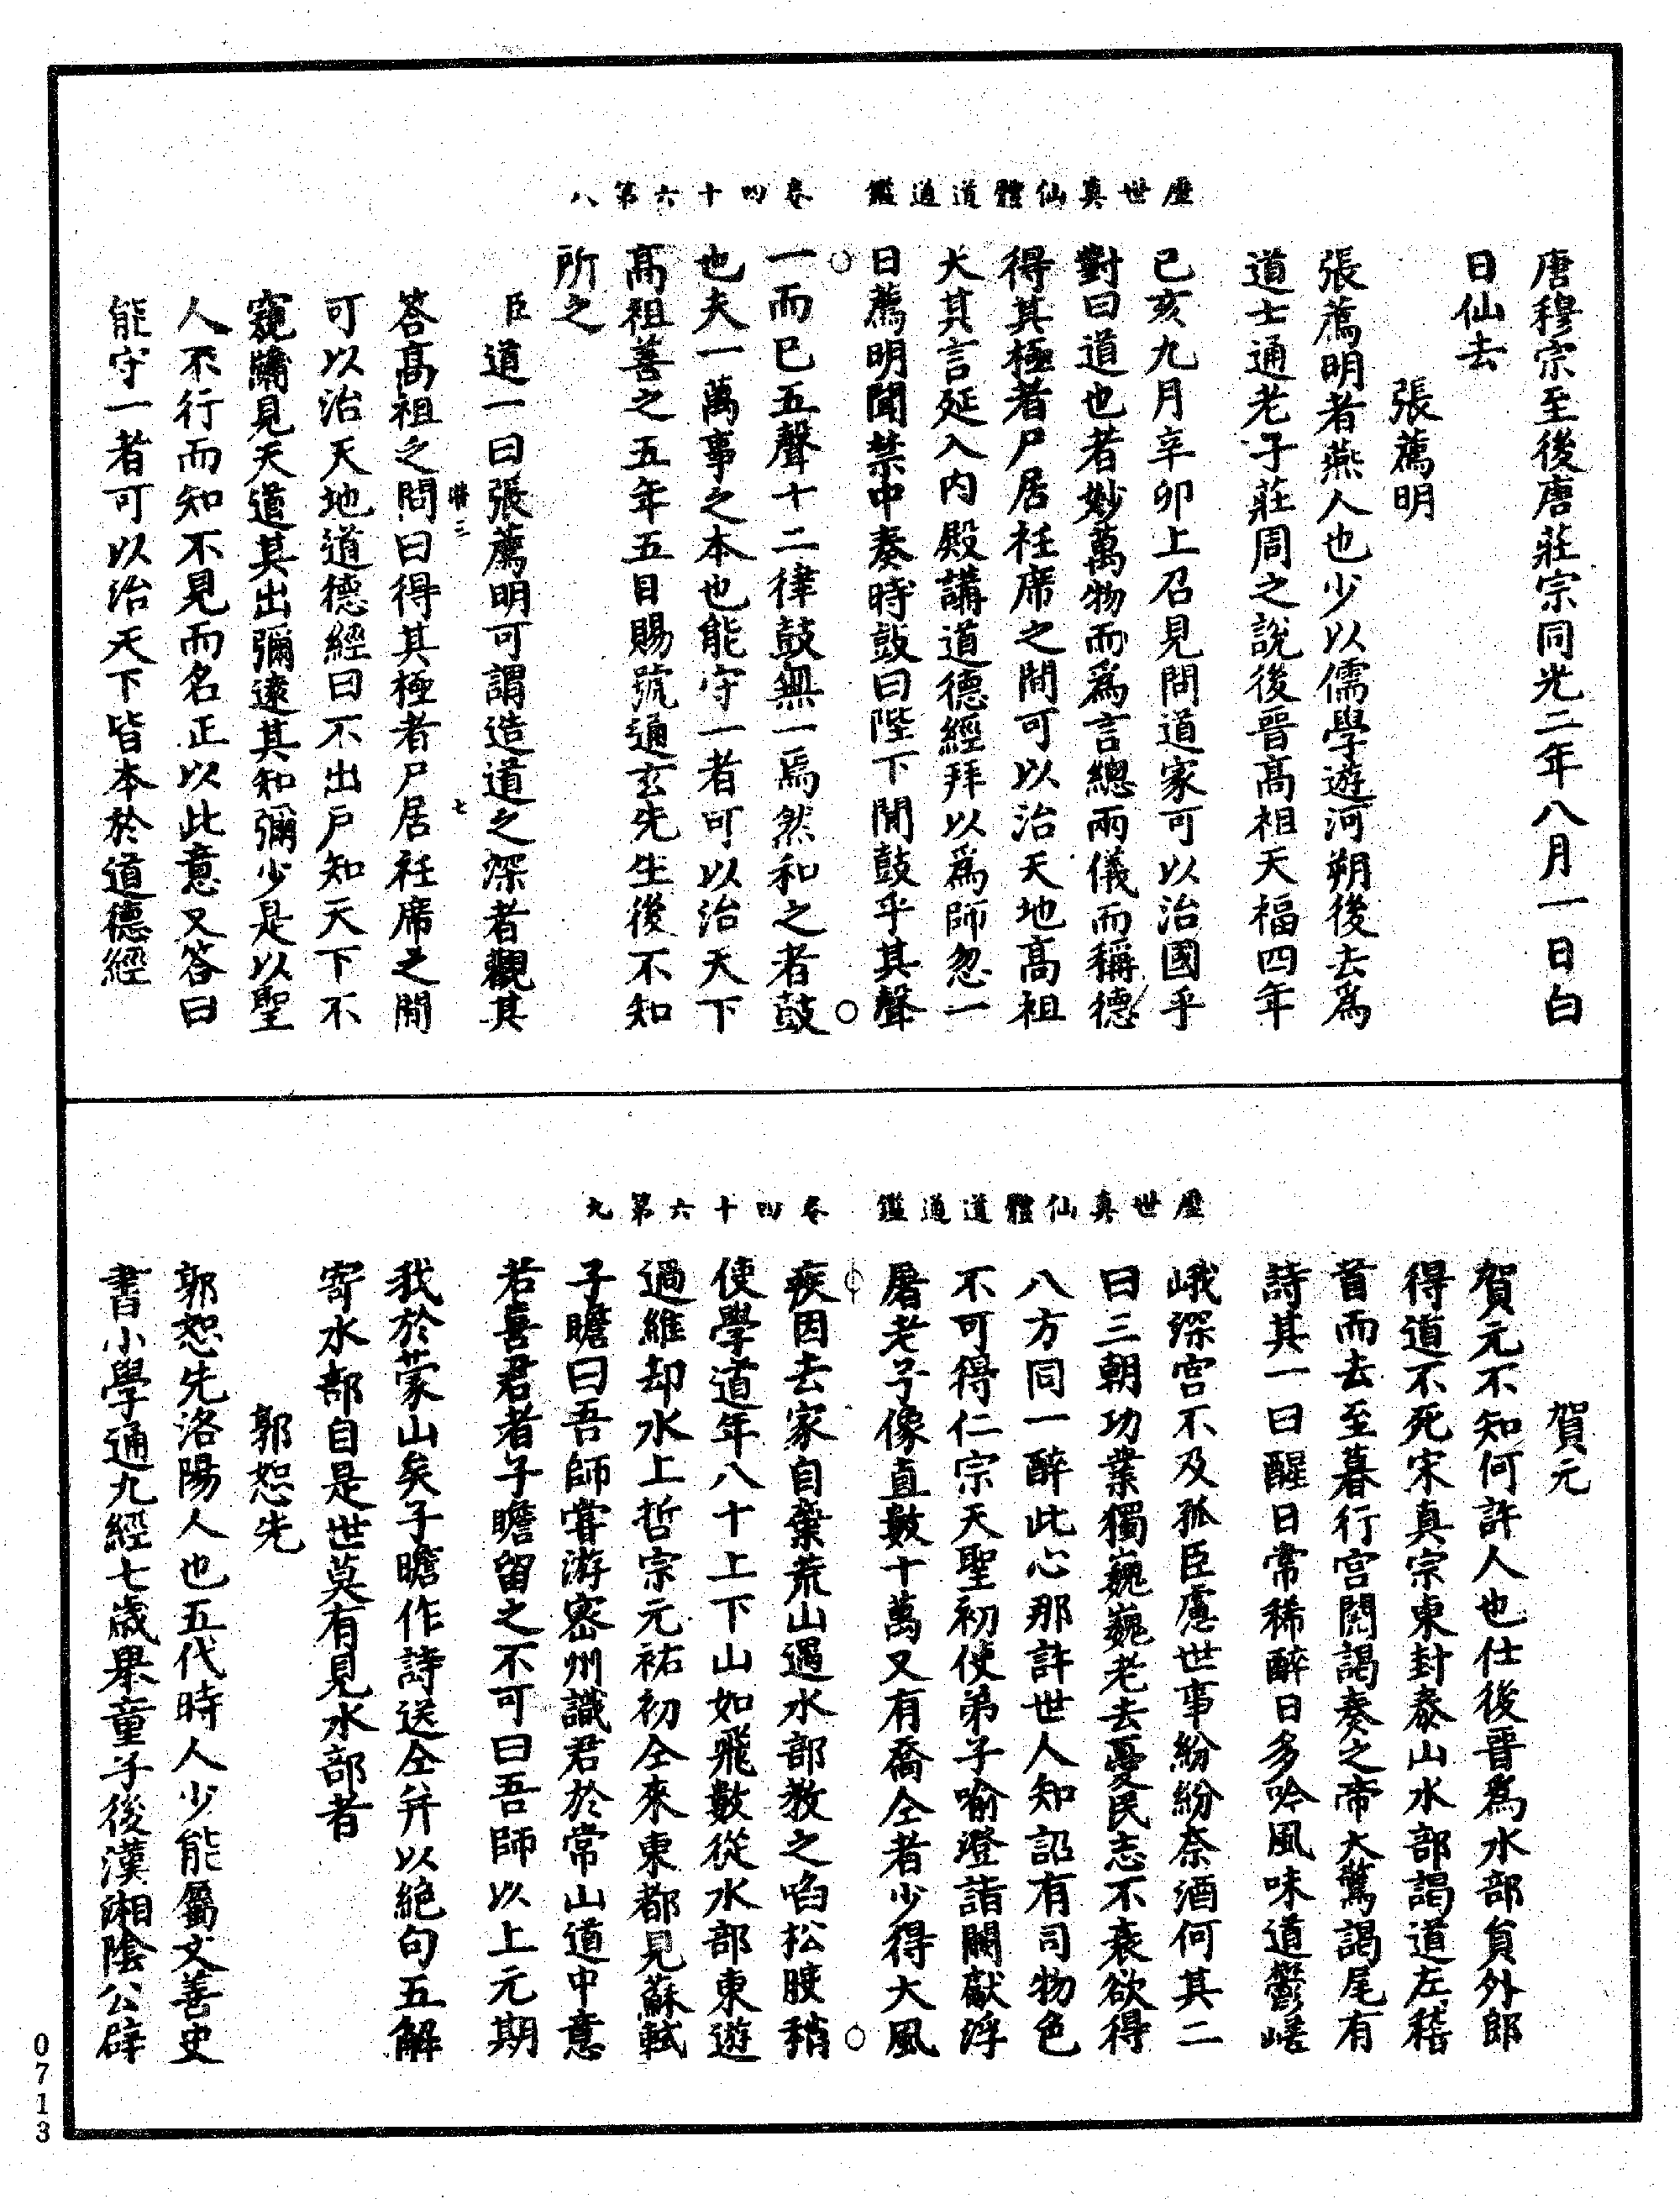 歷世真仙體道通鑑　卷四十六第八
唐穆宗至後唐莊宗同光二年八月一日白
日仙去
張薦明
張薦明者燕人也少以儒學遊河朔後去為
道士通老子莊周之說後晉高祖天福四年
己亥九月辛卯上召見問道家可以治國乎
對曰道也者妙萬物而為言總兩儀而稱德
得其極者尸居衽席之間可以治天地高祖
大其言延入內殿講道德經拜以為師忽一
日薦明聞禁中奏時鼓曰陛下聞鼓乎其聲
一而已五聲十二律鼓無一焉然和之者鼓
也夫一萬事之本也能守一者可以治天下
高祖善之五年五月賜號通玄先生後不知
所之
臣道一曰張薦明可謂造道之深者觀其
三　七
答高祖之問曰得其極者尸居衽席之間
可以治天地道德經曰不出戶知天下不
窺牖見天道其出彌遠其知彌少是以聖
人不行而知不見而名正以此意又答曰
能守一者可以治天下皆本於道德經
歷世真仙體道通鑑　卷四十六第九
賀元
賀元不知何許人也仕後晉為水部負外郎
得道不死宋真宗東封泰山水部謁道左稽
首而去至暮行宮閱謁奏之帝大驚謁尾有
詩其一曰醒日常稀醉日多吟風味道鬱嵯
峨深宮不及孤臣慮世事紛紛奈酒何其二
曰三朝功業獨巍巍老去憂民志不衰欲得
八方同一醉此心那許世人知詔有司物色
不可得仁宗天聖初使弟子喻澄詣闕獻浮
屠老子像直數十萬又有喬仝者少得大風
疾因去家自棄荒山遇水部教之啗松腴稍
使學道年八十上下山如飛數從水部東遊
過維却水上哲宗元祐初仝來東都見蘇軾
子瞻曰吾師嘗游密州識君於常山道中意
若喜君者子瞻留之不可曰吾師以上元期
我於蒙山矣子瞻作詩送仝并以絕句五解
寄水部自是世莫有見水部者
郭恕先
郭恕先洛陽人也五代時人少能屬文善史
書小學通九經七歲舉童子後漢湘陰公辟
0713